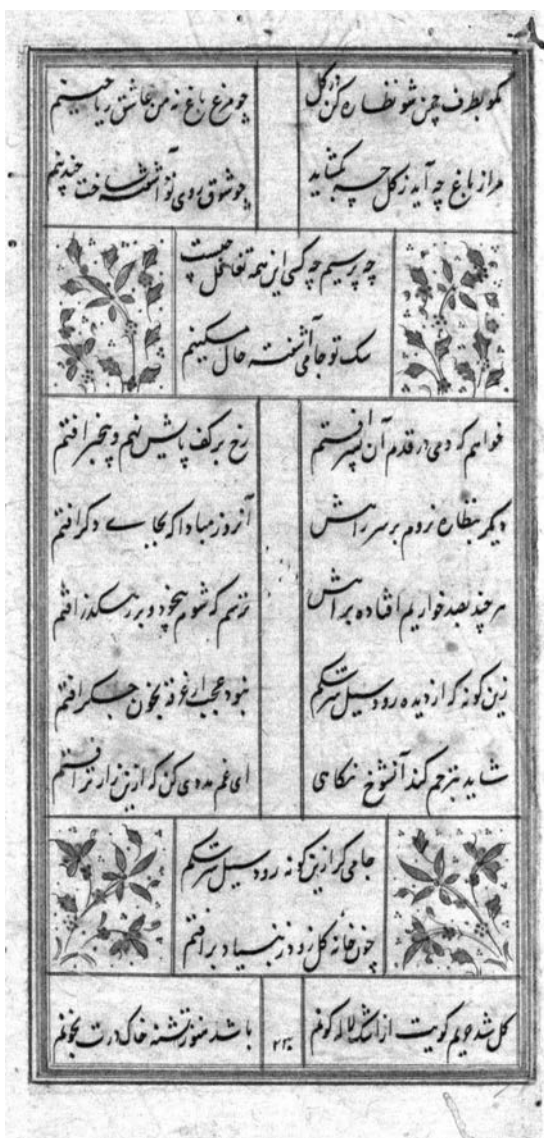 مگو بطرف چمن شو نظاره کن در گل
چو مرغ باغ نه من عاشق ریاحینم
مرا ز باغ چه آید ز گل چه بگشاید
چو شوق روی تو آشفته ساخت چندینم
چه پرسیم چه کسی این همه تغافل چیست
سک تو جامی آشفته حال مسکینم
خواهم که دمی در قدم آن پسر افتم
رخ بر کف پایش نهم و بیخبر افتم
دیگر بنظاره نروم بر سر راهش
آنروز مبادا که بجایی دگر افتم
هر چند بصد خواریم افتاده براهش
ترسم که شوم بیخود و بر رهگذر افتم
زین گونه که از دیده رود سیل سرشکم
نبود عجب ار غرقه بخون جگر افتم
شاید بترحم کند آنشوخ نگاهی
ای غم مددی کن که ازین زارتر افتم
جامی گر ازین گونه رود سیل سرشکم
چون خانه گل زود ز بنیاد برافتم
گل شد حریم کویت از اشک لاله گونم
باشد هنوز تشنه خاک درت بخونم